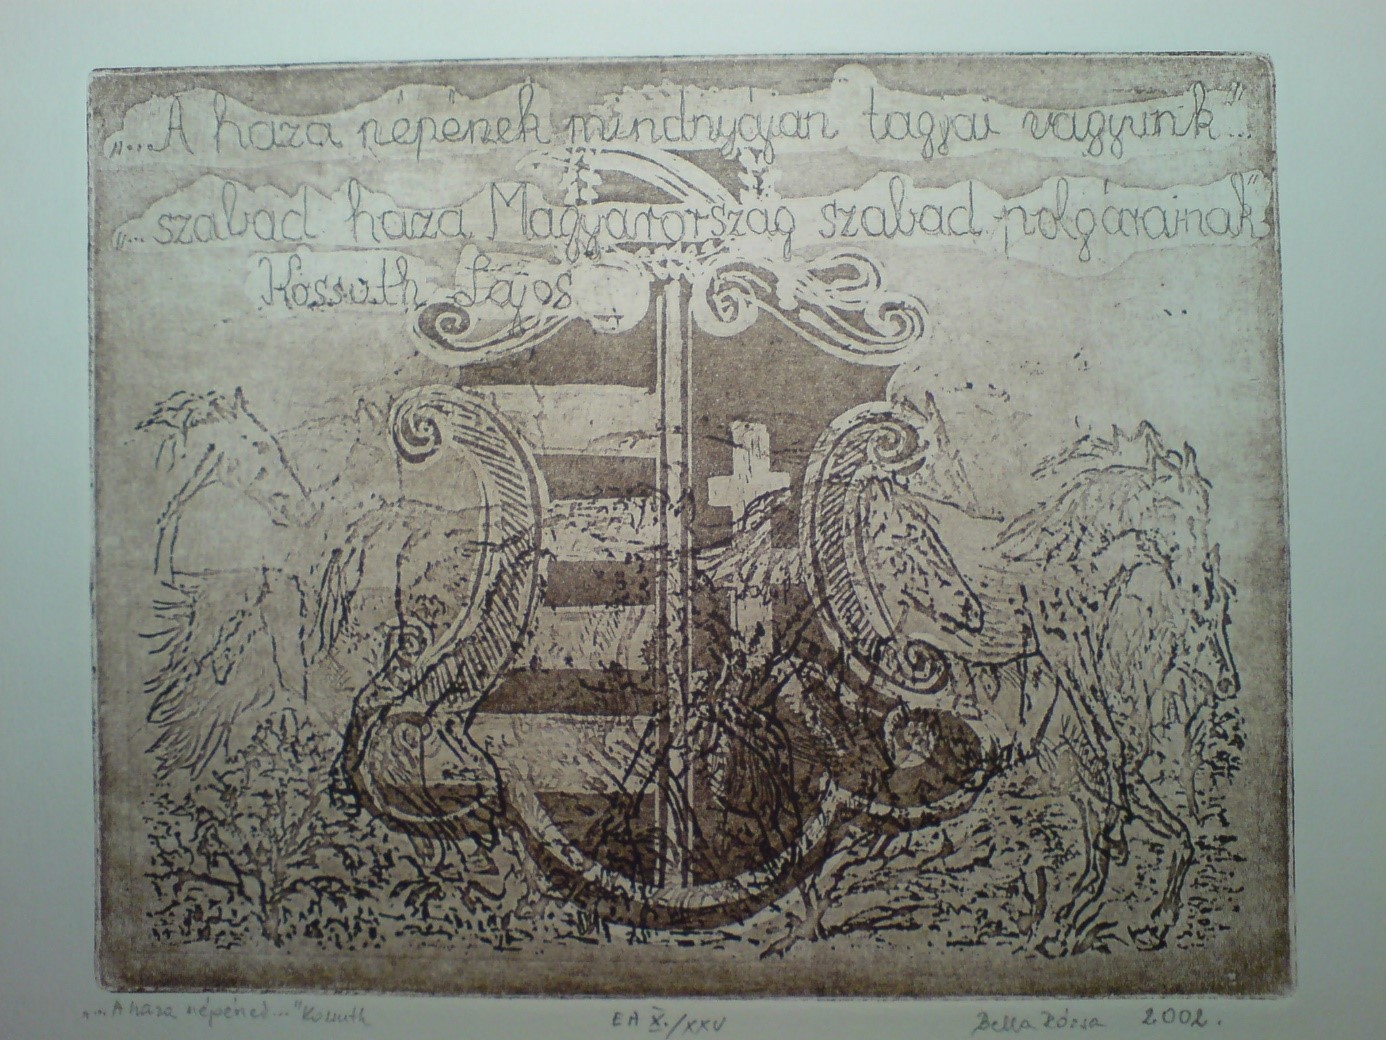 „...A haza népének mindnyájan tagjai vagyunk"...
„...szabad haza Magyarország szabad polgárainak"
Kossuth Lajos
„...A haza népének..." Kossuth
EA X./XXV
Bella Rózsa 2002.